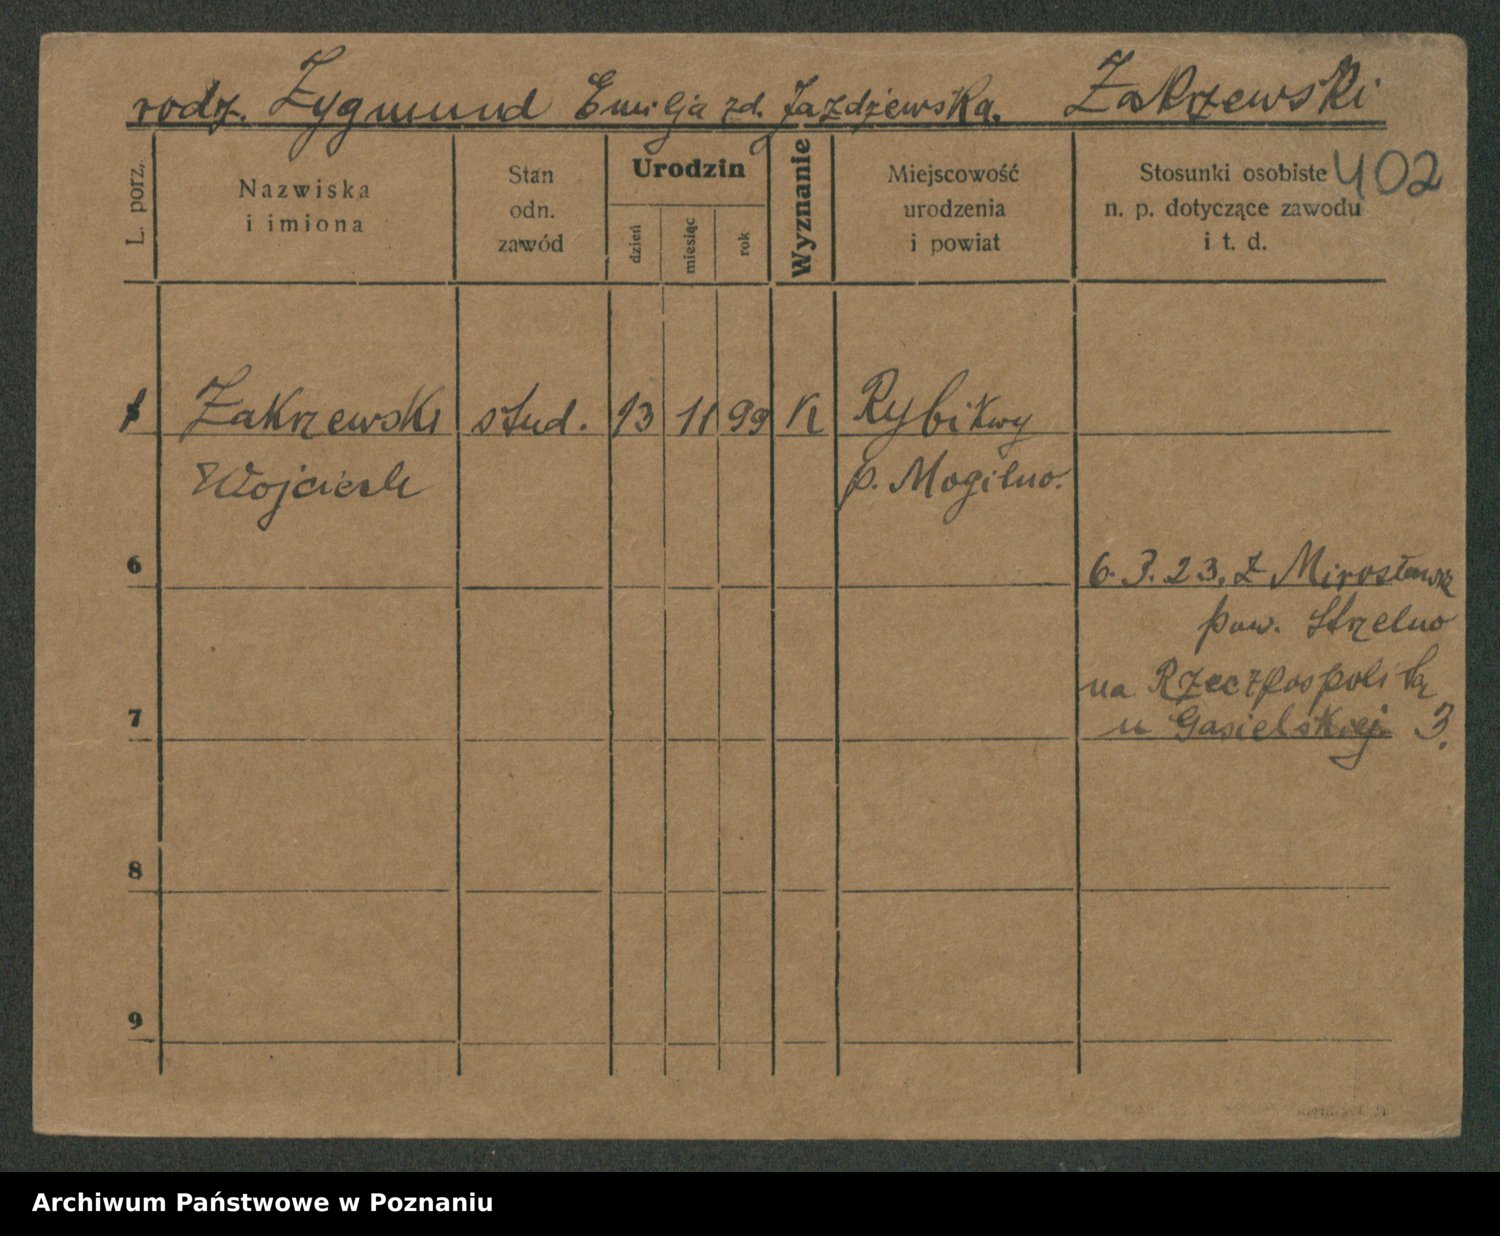 rodz. Zygmund Emilja zd. Jażdżewska. Zakrzewski
402
L. porz.
Nazwiska
i imiona
Stan
odn.
zawód
Urodzin
dzień
miesiąc
rok
Wyznanie
Miejscowość
urodzenia
i powiat
Stosunki osobiste
n. p. dotyczące zawodu
i t. d.
1 Zakrzewski stud. 13 11 99 K Rybitwy
Wojciech p. Mogilno.
6 6. 3. 23. z Mirosławic
pow. Strzelno
na Rzeczpospolitą
7 u Gasielskiej 3.
8
9
Archiwum Państwowe w Poznaniu